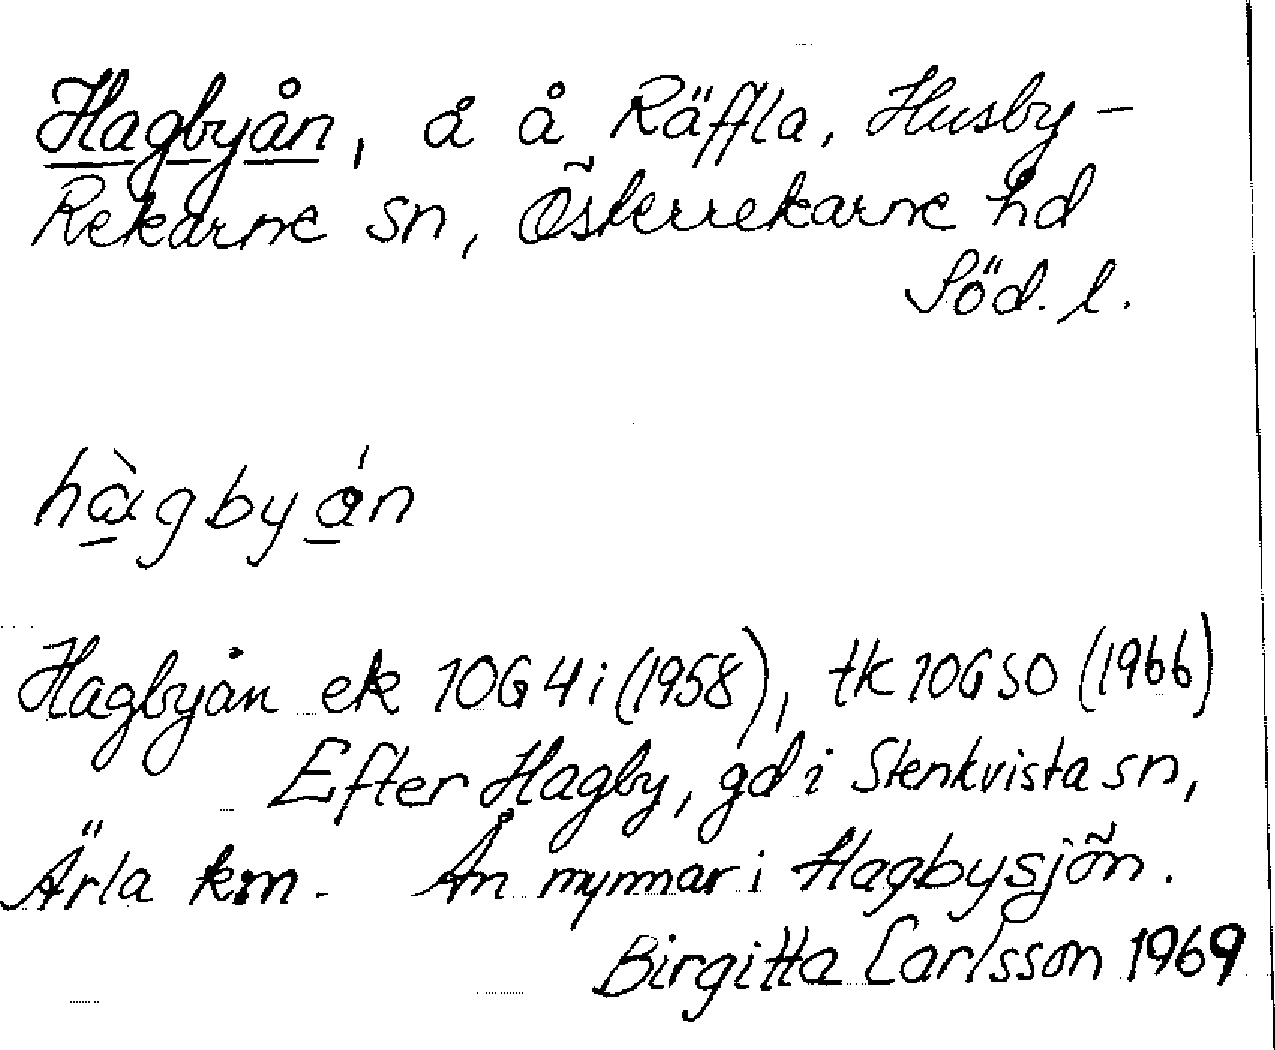 Hagbyån, å å Räffla, Husby-
Rekarne sn, Österrekarne hd
Söd. l.
hàgbyån
Hagbyån ek 10G4i (1958), tk 10GSO (1966)
Efter Hagby, gd i Stenkvista sn,
Ärla km. Ån mynnar i Hagbysjön.
Birgitta Carlsson 1969